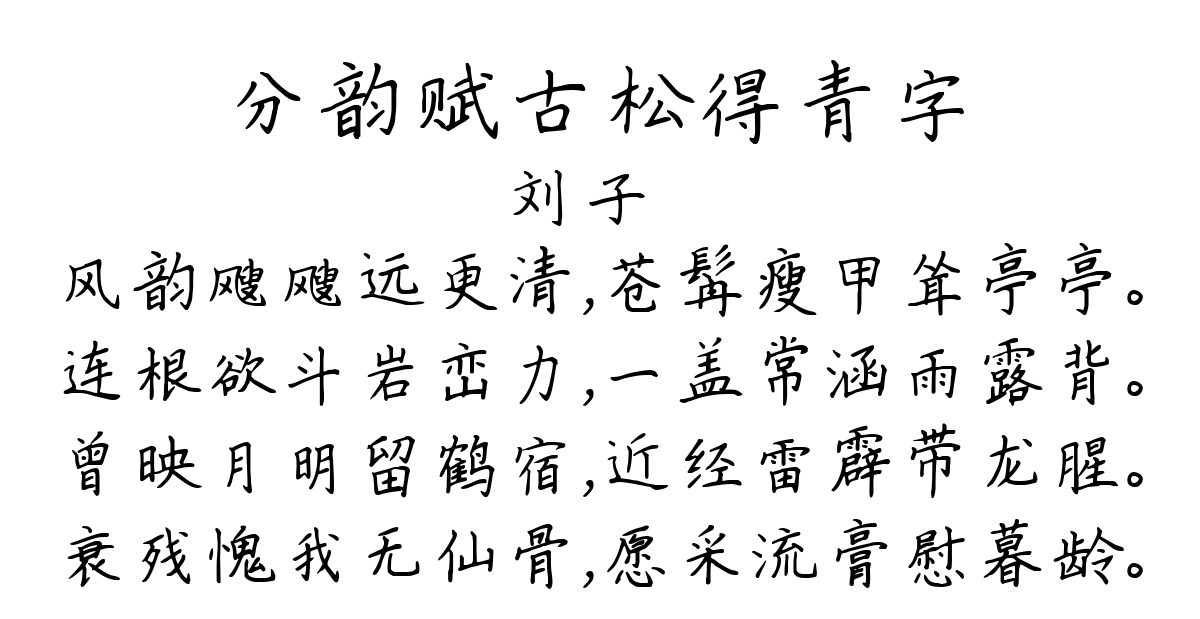 分韵赋古松得青字
刘子
风韵飕飕远更清,苍髯瘦甲耸亭亭。
连根欲斗岩峦力,一盖常涵雨露背。
曾映月明留鹤宿,近经雷霹带龙腥。
衰残愧我无仙骨,愿采流膏慰暮龄。